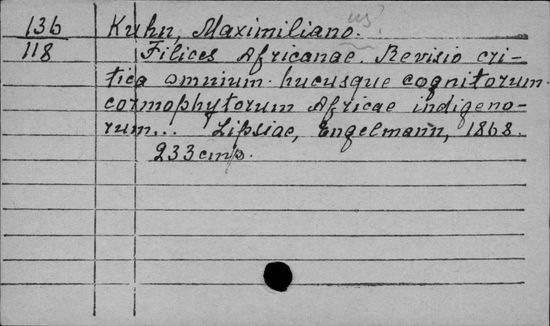 us?
136 Kuhn, Maximiliano.
118 Filices Africanae. Revisio cri-
tica omnium hucusque cognitorum
cormophytorum Africae indigeno-
rum... Lipsiae, Engelmann, 1868.
233